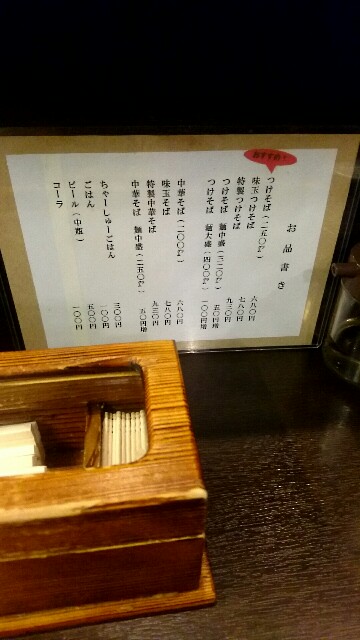 お品書き
おすすめ!
つけそば(二五〇g) 六八〇円
味玉つけそば 七八〇円
特製つけそば 九三〇円
つけそば 麺中盛(三二〇g) 五〇円増
つけそば 麺大盛(四〇〇g) 一〇〇円増
中華そば(二〇〇g) 六八〇円
味玉そば 七八〇円
特製中華そば 九三〇円
中華そば 麺中盛(二五〇g) 五〇円増
ちゃーしゅーごはん 三〇〇円
ごはん 一〇〇円
ビール(中瓶) 五〇〇円
コーラ 一〇〇円